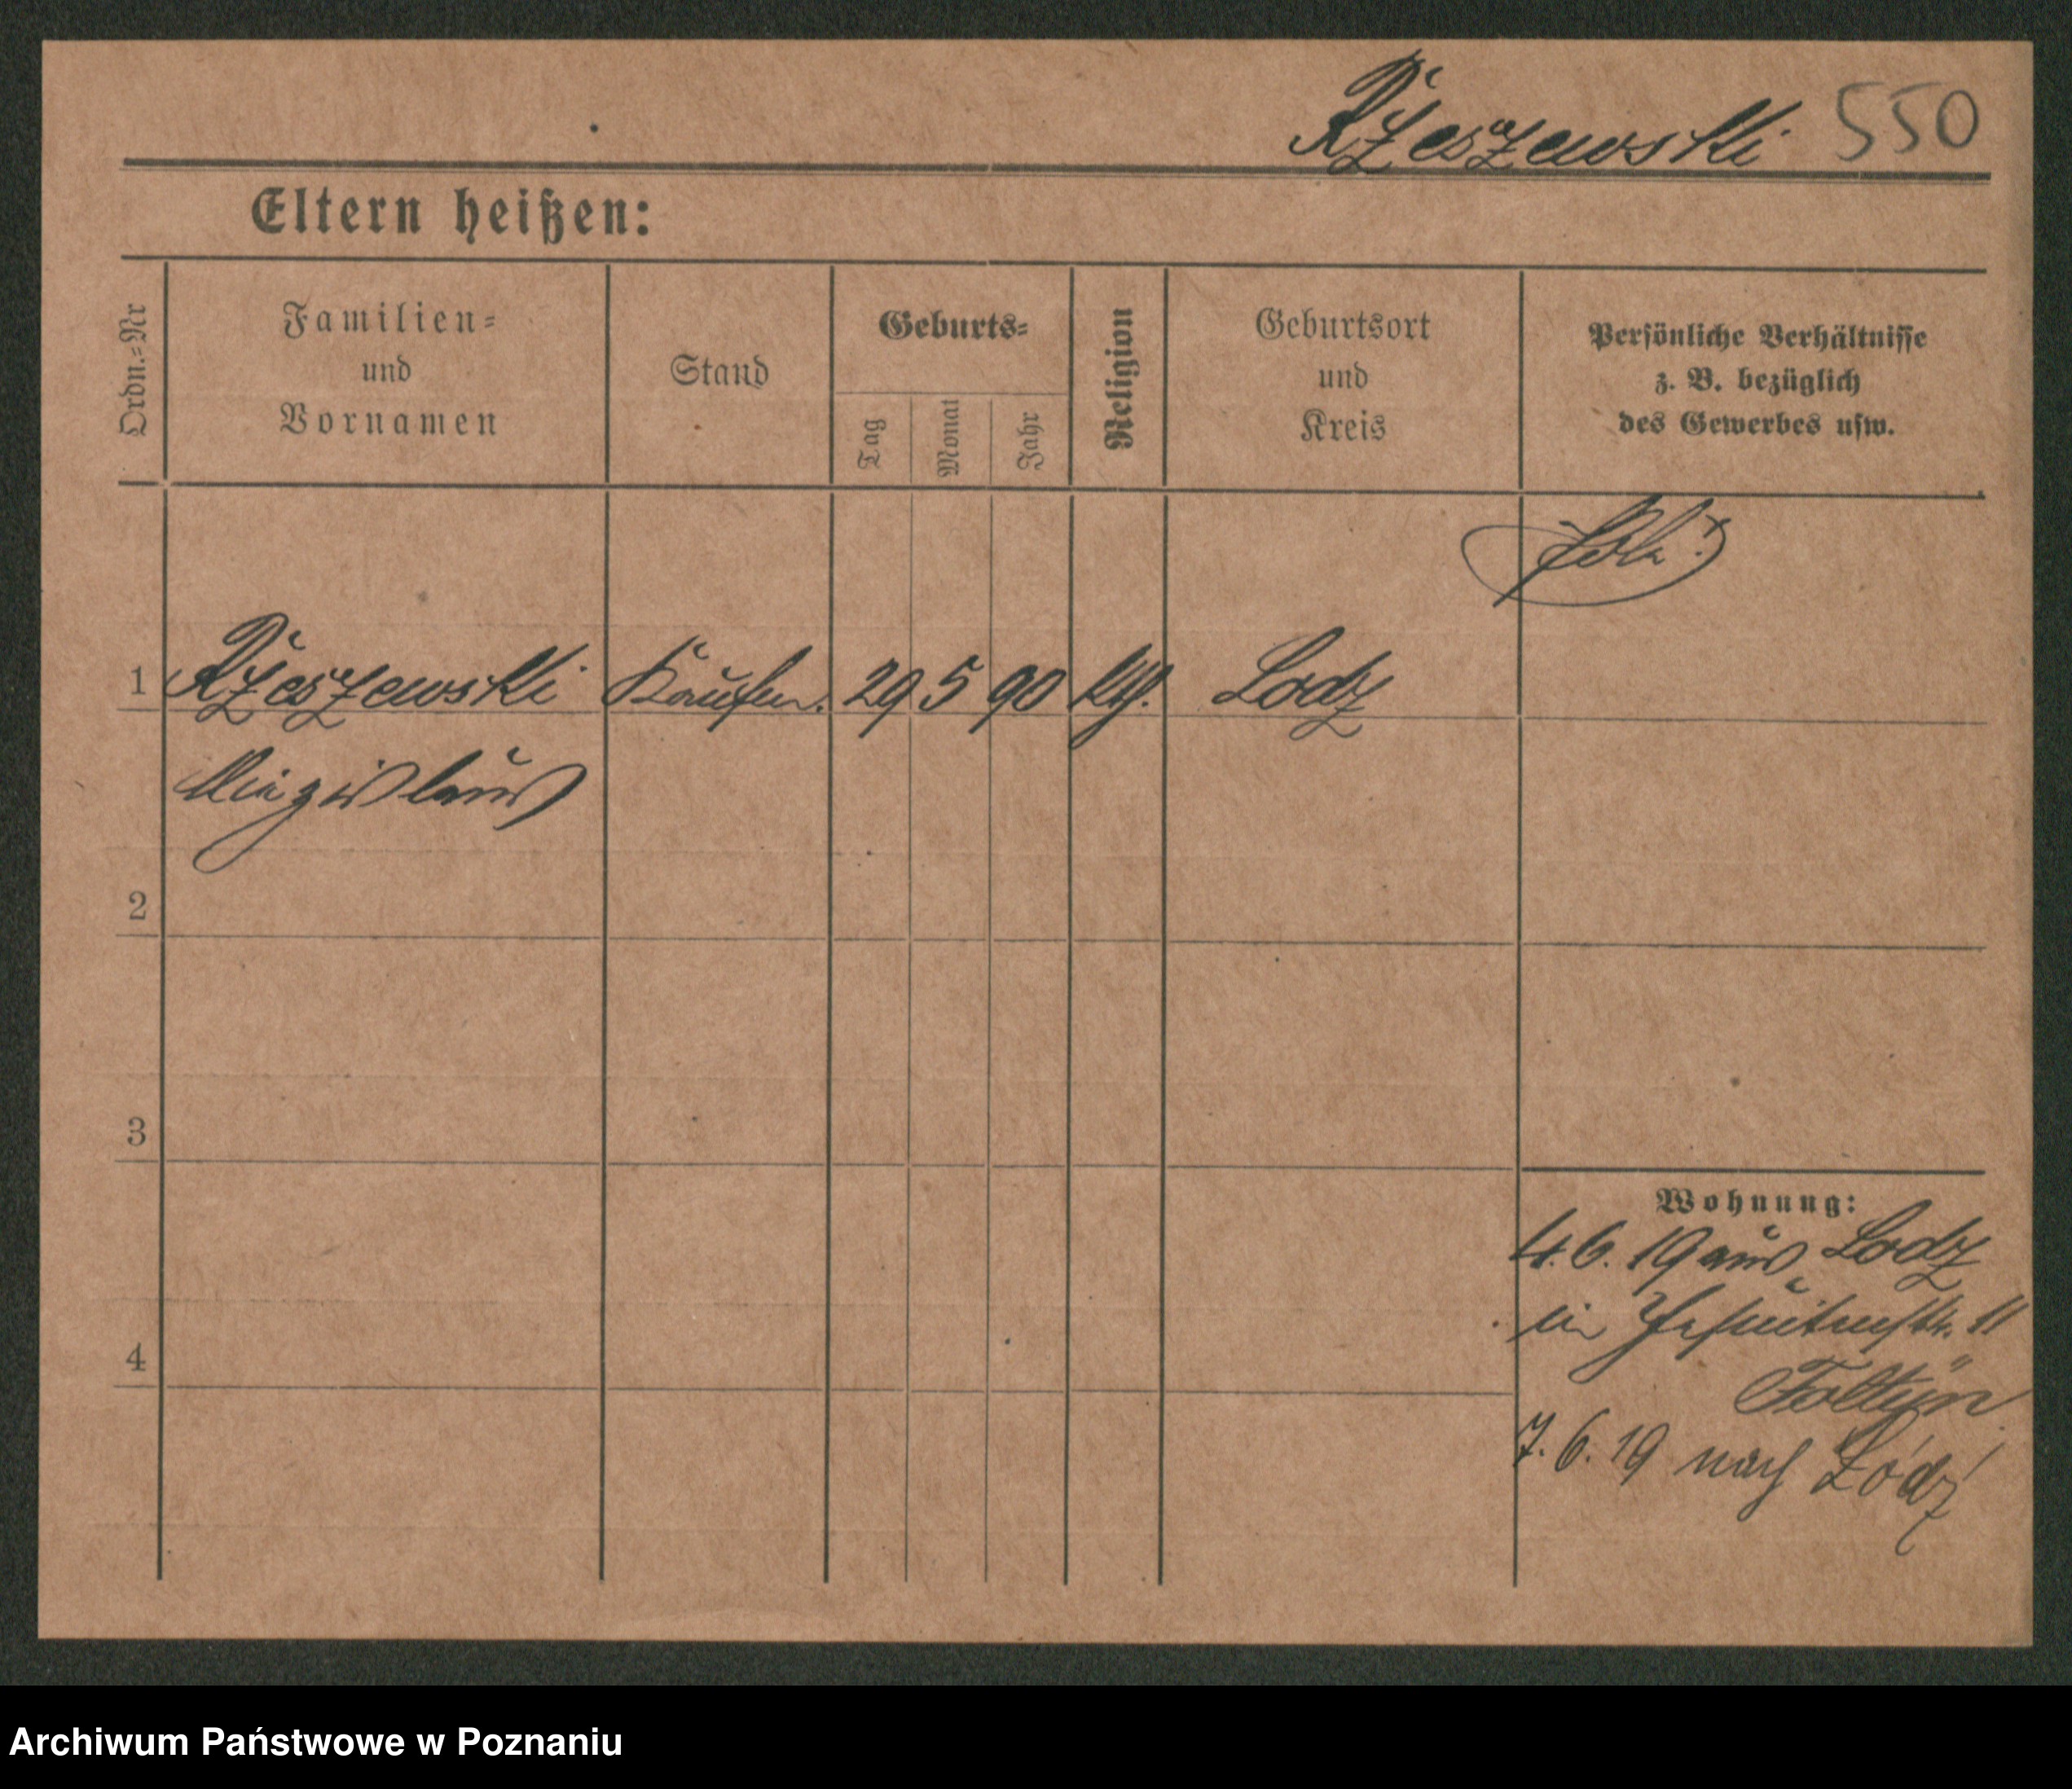 Rzeszewski 550
Eltern heißen:
Ordn.-Nr
Familien-
und
Vornamen
Stand
Geburts-
Tag
Monat
Jahr
Religion
Geburtsort
und
Kreis
Persönliche Verhältnisse
z. B. bezüglich
des Gewerbes usw.
1 Rzeszewski Kaufm. 29 5 90 kth. Lodz
Miezislaus
2
3
4
Wohnung:
4.6.19 aus Lodz
in Jesuitenstr. 11
7.6.19 nach Łódź
Archiwum Państwowe w Poznaniu